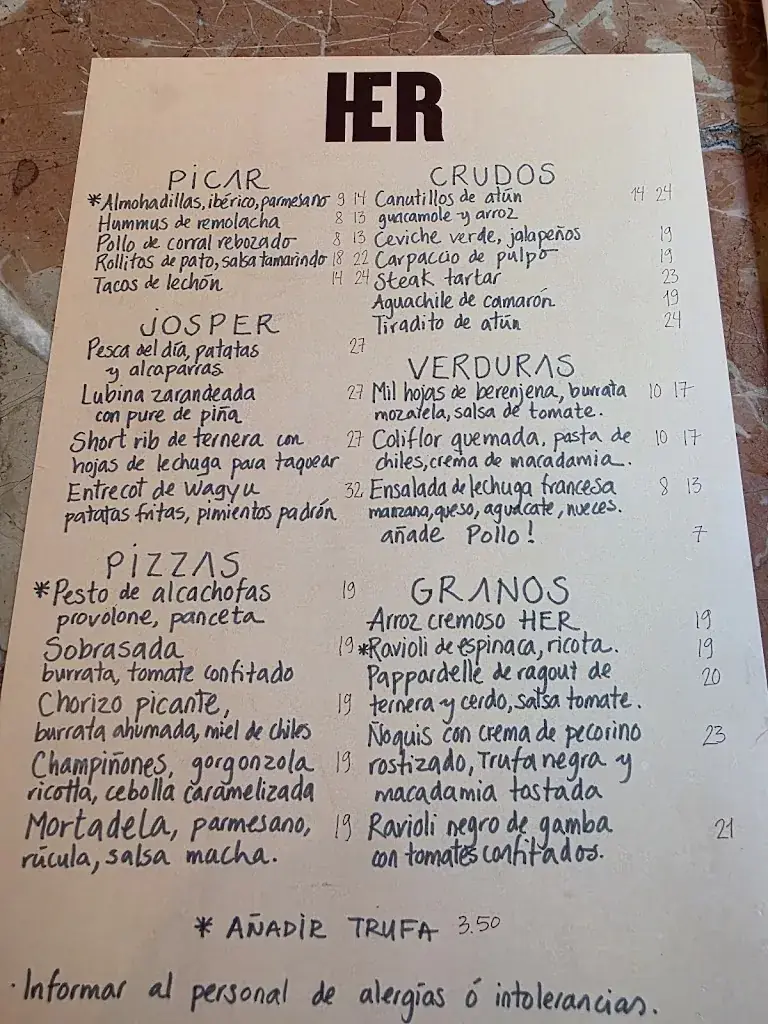 HER
PICAR
*Almohadillas, ibérico, parmesano 9 14
Hummus de remolacha 8 13
Pollo de corral rebozado 8 13
Rollitos de pato, salsa tamarindo 18 22
Tacos de lechón 14 24
JOSPER
Pesca del día, patatas 27
y alcaparras
Lubina zarandeada 27
con pure de piña
Short rib de ternera con 27
hojas de lechuga para taquear
Entrecot de Wagyu 32
patatas fritas, pimientos padrón
PIZZAS
*Pesto de alcachofas 19
provolone, panceta
Sobrasada 19
burrata, tomate confitado
Chorizo picante, 19
burrata ahumada, miel de chiles
Champiñones, gorgonzola 19
ricotta, cebolla caramelizada
Mortadela, parmesano, 19
rúcula, salsa macha.
CRUDOS
Canutillos de atún 14 24
guacamole y arroz
Ceviche verde, jalapeños 19
Carpaccio de pulpo 19
Steak tartar 23
Aguachile de camarón 19
Tiradito de atún 24
VERDURAS
Mil hojas de berenjena, burrata 10 17
mozarela, salsa de tomate.
Coliflor quemada, pasta de 10 17
chiles, crema de macadamia.
Ensalada de lechuga francesa 8 13
manzana, queso, aguacate, nueces.
añade Pollo! 7
GRANOS
Arroz cremoso HER 19
*Ravioli de espinaca, ricota. 19
Pappardelle de ragout de 20
ternera y cerdo, salsa tomate.
Ñoquis con crema de pecorino 23
rostizado, Trufa negra y
macadamia tostada
Ravioli negro de gamba 21
con tomates confitados.
* AÑADIR TRUFA 3.50
· Informar al personal de alergías ó intolerancias.